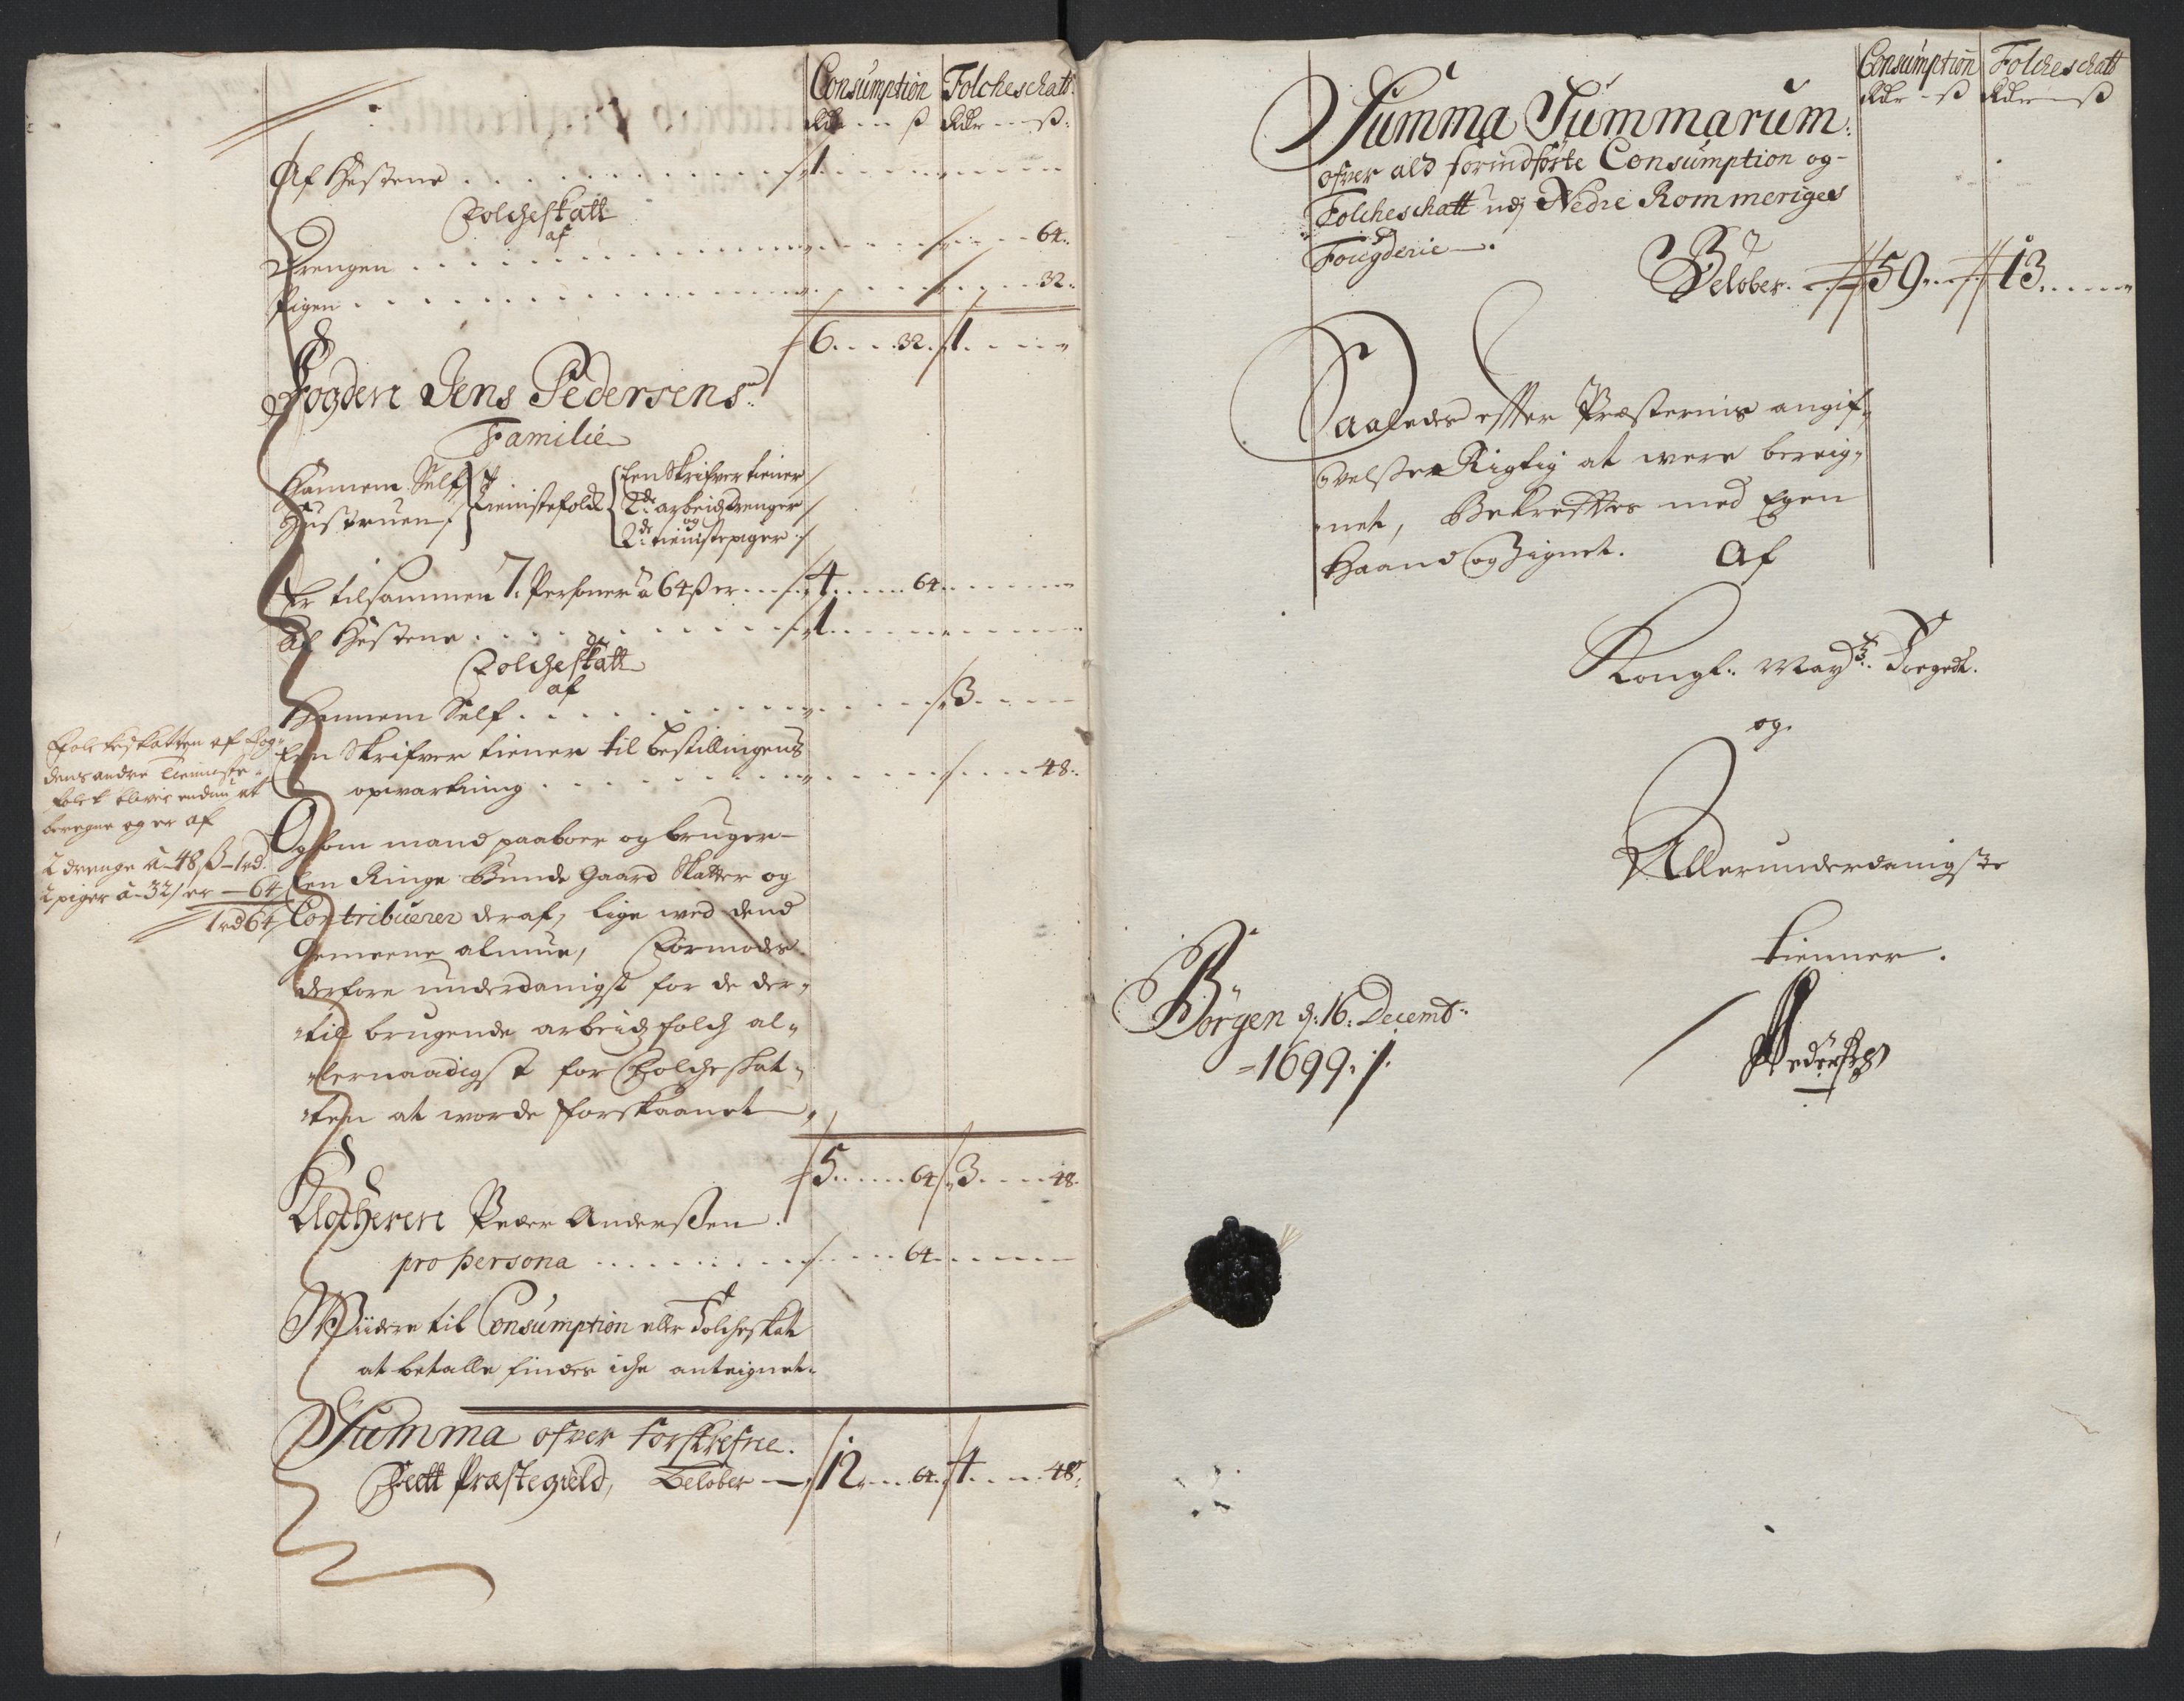 Consumption Folcheschatt
Rdr ß Rdr ß
Af Hestene 1
Folcheskatt
af
Drengen 64
Pigen 32
6 32 1
Fogden Jens Pedersens
Familie
Hannem Self
Hustruen
Tienistefolck
Een Skrifvertiener
2de arbeidsdrenger
og
2de tienistepiger
Er tilsammen 7. Personer â 64 ß er 4 64
Af Hestene 1
Folcheskatt
af
Hannem Self 3
Een Skrifver tiener til bestillingens
opvartning 48
Folcheskatten af Fog-
dens andre Tieniste-
folck blifver endnu at
beregne og er af
2 drenge â 48 ß 1rd
2 piger â 32 er 64
1rd 64
Og som mand paaboer og bruger
en Ringe Bunde Gaard Skatter og
Contribuerer deraf, lige wed dend
gemeene almue, Formodes
derfore underdanigst for de der-
til brugende arbeidsfolch al-
lernaadigst for Folcheskat-
ten at worde forskaanet
5 64 3 48
Klocheren Peder Anderßen
pro persona 64
Wiidere til Consumption eller Folcheskat
at betalle findes iche anteignet
Summa ofver forskrefne
Fedt Præstegield, Beløber 12 64 4 48
Consumption Folcheschatt
Rdr ß Rdr ß
Summa Summarum
ofver ald forindførte Consumption og
Folcheschatt udj Nedre Rommeriges
Fougderie
Beløber 59 13
Saaledes effter Præsternis angif-
velßer Rigtig at were bereig-
net, Bekreffter med Egen
Haand og Zignet. Af
Kongl. May
og
Allerunderdanigste
tienner.
Børgen d. 16. Decemb.
1699.